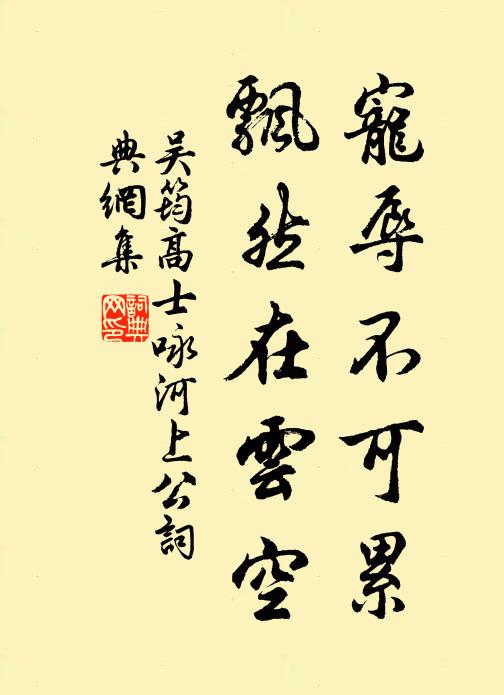 寵辱不可累
飄然在雲空
吴筠高士咏河上公詞
典網集
詞典
网印